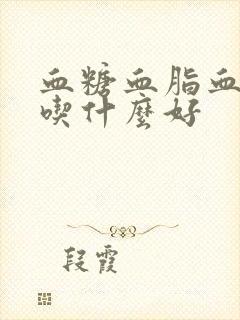 血糖血脂血
喫什麼好
段霞